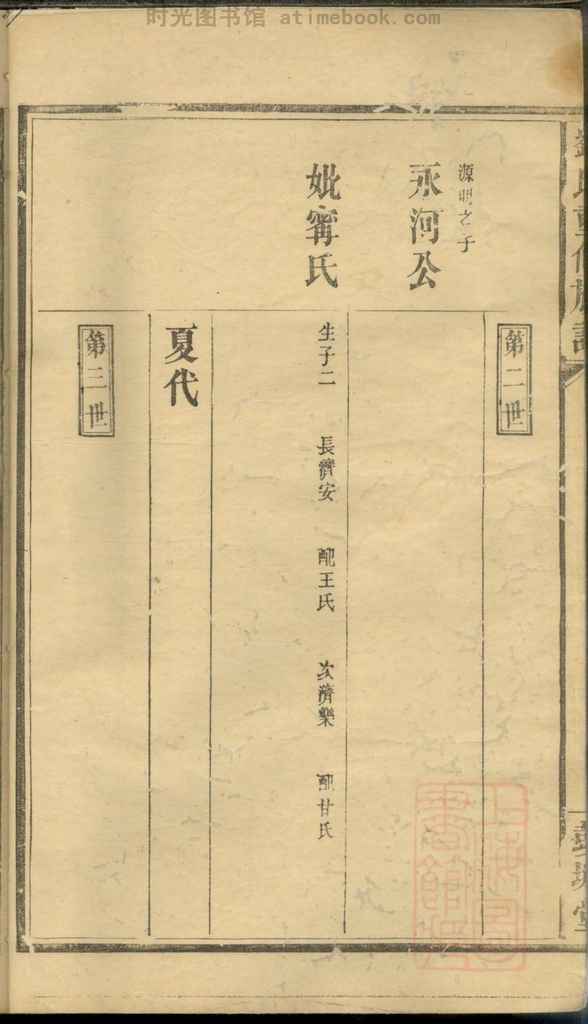 时光图书馆 atimebook.com
第二世
源明之子
永河公
妣甯氏
生子二 長濟安 配王氏 次濟樂 配甘氏
夏代
第三世